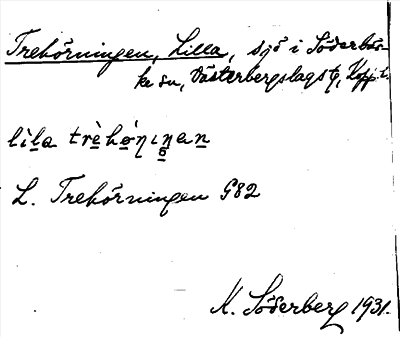 Trehörningen, Lilla, sjö i Söderbär-
ke sn, Västerbergslags tg, Kopp. l.
lìla trèhøṇiṇan
L. Trehörningen G82
K. Söderberg 1931.